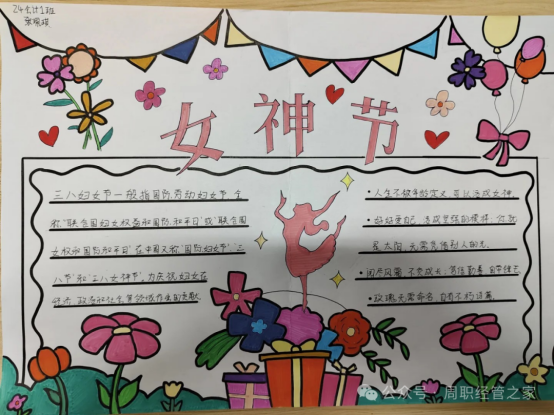 24会计1班
女神节
三八妇女节一般指国际劳动妇女节,全
称"联合国妇女权益和国际和平日"或"联合国
女权和国际和平日"在中国又称"国际妇女节"、三
八节"和"三八女神节",为庆祝妇女在
经济、政治和社会等领域作出的贡献
•人生不被年龄定义,可以活成女神.
•好好爱自己,活成坚强的模样:你就
是太阳,无需凭借别人的光.
•阅尽风霜,不贪成长:笃信勤奋
•玫瑰无需命名,自有不朽诗篇.
公众号 · 周职经管之家